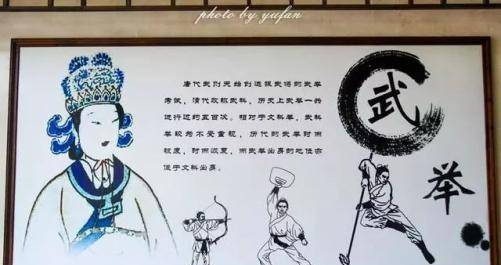 photo by yufan
唐代武则天始创选拔武将的武举
考试，清代改称武科，历史上武举一共
进行过约五百次。相对于文科举，武科
举较为不受重视，历代的武举时而
被废，时而恢复，而武举出身的地位亦
低于文科出身。
武
举